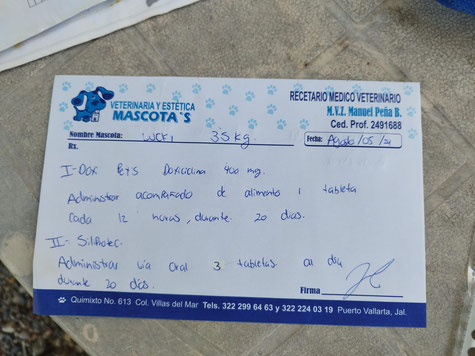 VETERINARIA Y ESTÉTICA
MASCOTA`S
RECETARIO MEDICO VETERINARIO
M.V.Z. Manuel Peña B.
Ced. Prof. 2491688
Nombre Mascota: 35kg.
Fecha: Agosto/05/
Rx.
I-Dox Pets Doxiciclina 400 mg.
Administrar acompañado de alimento 1 tableta
Cada 12 horas, durante 20 días.
II-
Administrar vía oral 3 tabletas al día
durante 30 días.
Firma
Quimixto No. 613 Col. Villas del Mar Tels. 322 299 64 63 y 322 224 03 19 Puerto Vallarta, Jal.